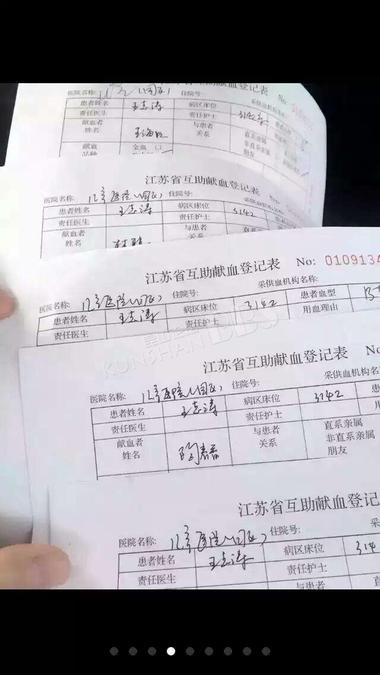 江苏省互助献血登记表 No:
医院名称: 住院号: 采供血机构名称:
患者姓名 王志涛 病区床位 3142
责任医生 责任护士
献血者 与患者 直系亲属
姓名 关系 非直系亲属
朋友
献血 全血 口
江苏省互助献血登记表 No:
医院名称: 儿童医院(园区) 住院号:
患者姓名 王志涛 病区床位 3142
责任医生 责任护士
献血者 与患者 直系亲属
姓名 关系 非直系亲属
朋友
江苏省互助献血登记表 No: 0109134
医院名称: 儿童医院(园区) 住院号: 采供血机构名称:
患者姓名 王志涛 病区床位 3142 患者血型
责任医生 责任护士 用血理由
KUNSHAN BBS
江苏省互助献血登记表 No:
医院名称: 儿童医院(园区) 住院号: 采供血机构名称:
患者姓名 王志涛 病区床位 3142
责任医生 责任护士
献血者 与患者 直系亲属
姓名 关系 非直系亲属
朋友
江苏省互助献血登记表
医院名称: 儿童医院(园区) 住院号:
患者姓名 王志涛 病区床位 314
责任医生 责任护士